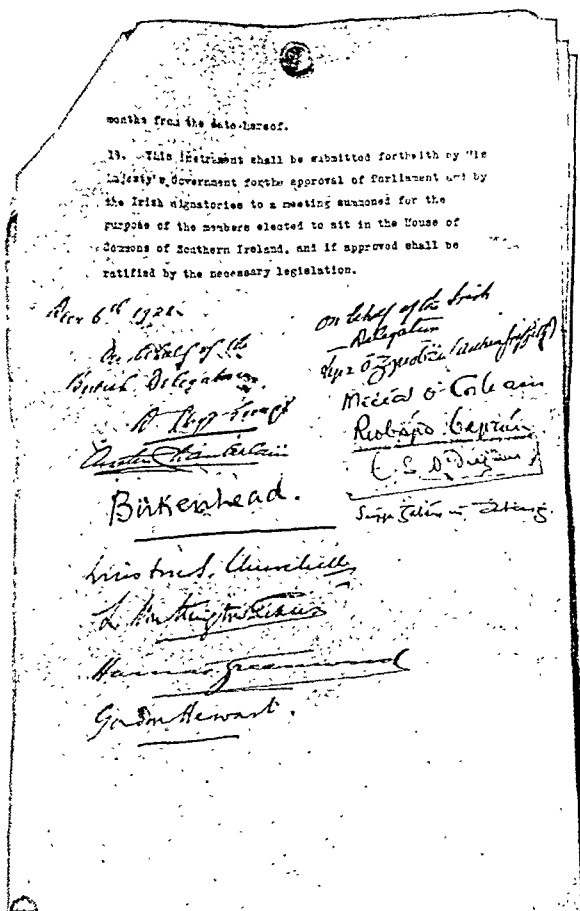 months from the date hereof.
19. This instrument shall be submitted forthwith by His
Majesty's Government for the approval of Parliament and by
the Irish signatories to a meeting summoned for the
purpose of the members elected to sit in the House of
Commons of Southern Ireland, and if approved shall be
ratified by the necessary legislation.
Decr 6th 1921.
On behalf of the
British Delegation.
D Lloyd George
Austen Chamberlain
Birkenhead.
Winston S. Churchill
L Worthington Evans
Hamar Greenwood
Gordon Hewart.
On behalf of the Irish
Delegation
(Arthur Griffith)